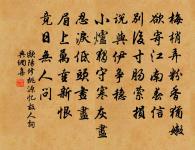 梅梢弄粉香猶嫩
欲寄江南春信
別後寸腸縈損
說與伊爭穩
小爐獨守寒灰燼
忍淚低頭畫盡
眉上萬重新恨
竟日無人問
歐陽修桃源憶故人詞